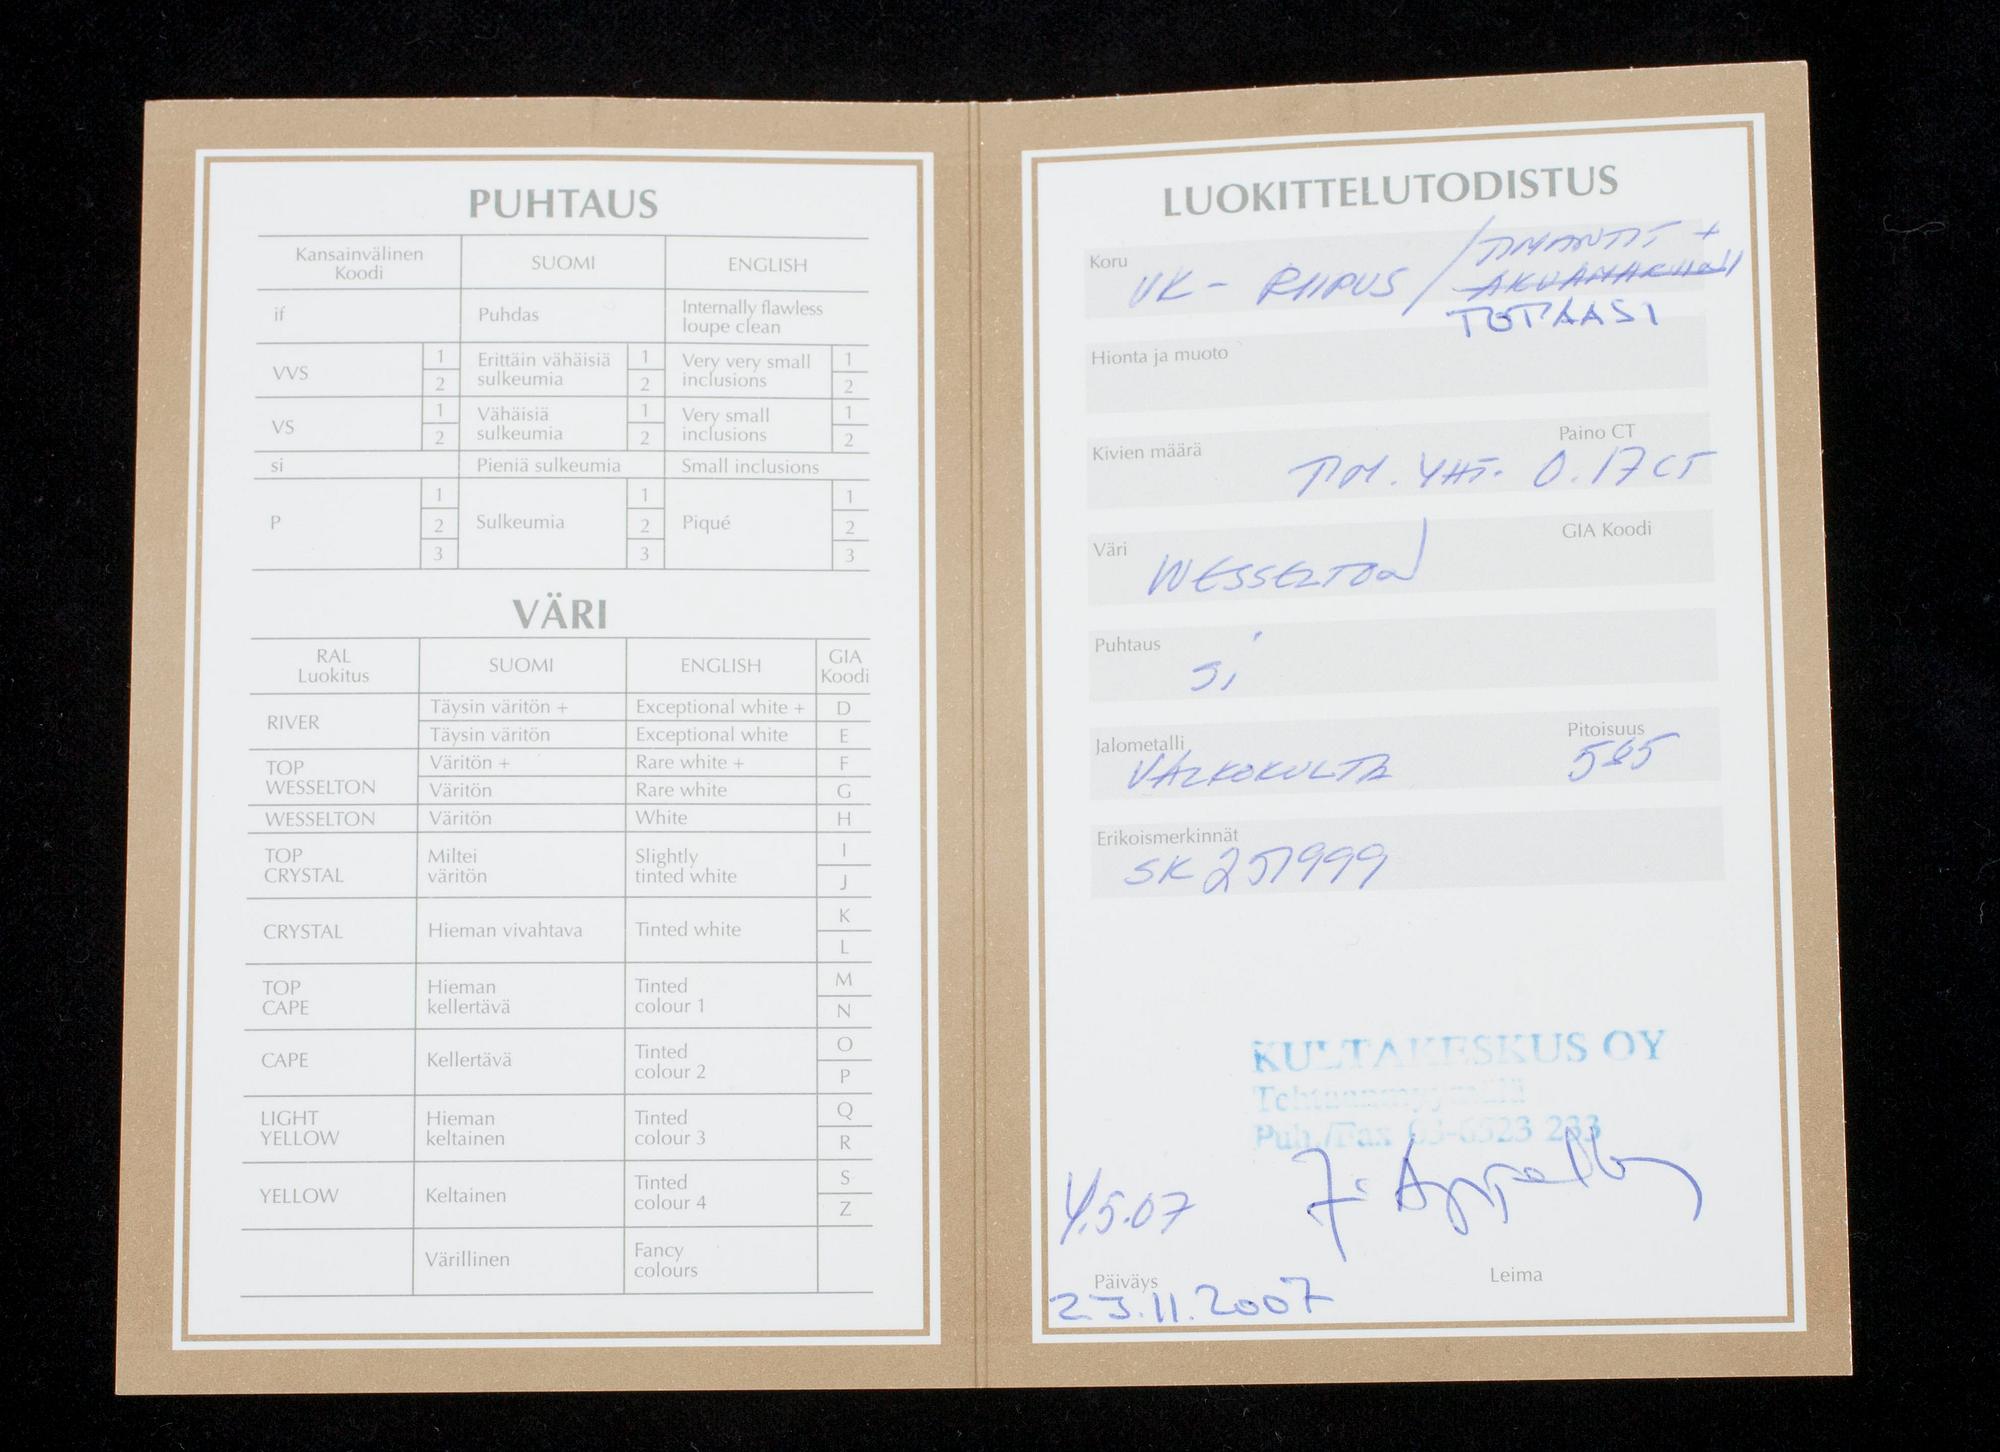 PUHTAUS
Kansainvälinen Koodi SUOMI ENGLISH
if Puhdas Internally flawless loupe clean
VVS 1 2 Erittäin vähäisiä sulkeumia 1 2 Very very small inclusions 1 2
VS 1 2 Vähäisiä sulkeumia 1 2 Very small inclusions 1 2
si Pieniä sulkeumia Small inclusions
P 1 2 3 Sulkeumia 1 2 3 Piqué 1 2 3
VÄRI
RAL Luokitus SUOMI ENGLISH GIA Koodi
RIVER Täysin väritön + Exceptional white + D
Täysin väritön Exceptional white E
TOP WESSELTON Väritön + Rare white + F
Väritön Rare white G
WESSELTON Väritön White H
TOP CRYSTAL Miltei väritön Slightly tinted white I J
CRYSTAL Hieman vivahtava Tinted white K L
TOP CAPE Hieman kellertävä Tinted colour 1 M N
CAPE Kellertävä Tinted colour 2 O P
LIGHT YELLOW Hieman keltainen Tinted colour 3 Q R
YELLOW Keltainen Tinted colour 4 S Z
Värillinen Fancy colours
LUOKITTELUTODISTUS
Koru VK - RIIPUS / TIMANTIT +
AKVAMARIINI
TOPAASI
Hionta ja muoto
Kivien määrä Paino CT
TIM. YHT. 0.17 CT
Väri WESSELTON GIA Koodi
Puhtaus
si
Jalometalli Pitoisuus
VALKOKULTA 585
Erikoismerkinnät
SK 251999
KULTAKESKUS OY
Tehtaanmyymälä
Puh./Fax 03-6523 233
4.5.07
Päiväys Leima
23.11.2007